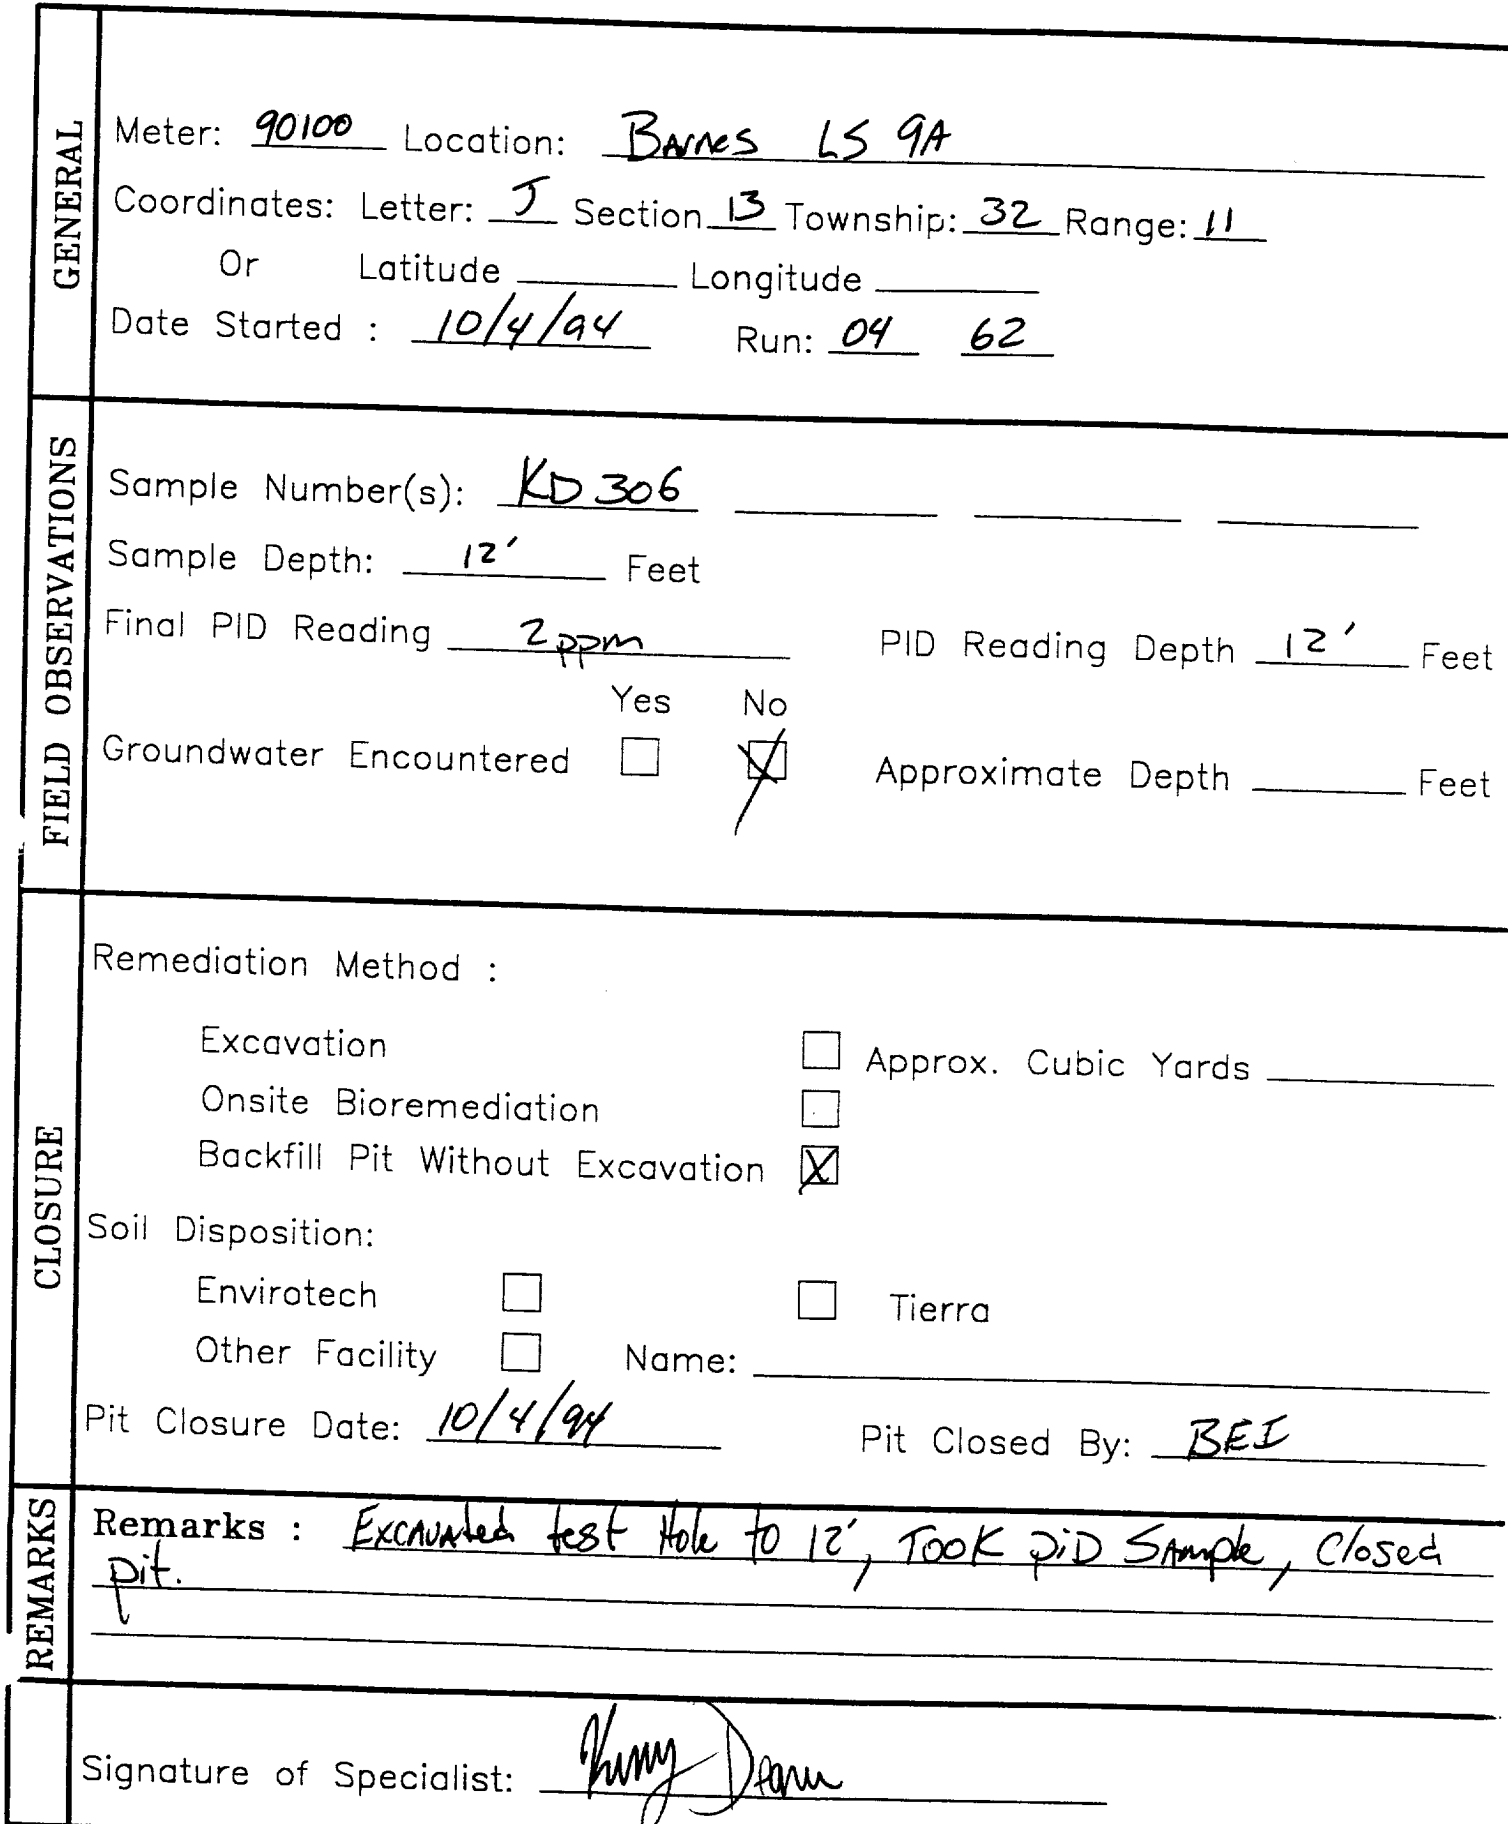 GENERAL
Meter: 90100 Location: Barnes LS 9A
Coordinates: Letter: J Section 13 Township: 32 Range: 11
Or Latitude ______ Longitude ______
Date Started : 10/4/94 Run: 04 62
FIELD OBSERVATIONS
Sample Number(s): KD 306
Sample Depth: 12' Feet
Final PID Reading 2 ppm PID Reading Depth 12' Feet
Yes No
Groundwater Encountered ☐ ☒ Approximate Depth ______ Feet
CLOSURE
Remediation Method :
Excavation ☐ Approx. Cubic Yards ______
Onsite Bioremediation ☐
Backfill Pit Without Excavation ☒
Soil Disposition:
Envirotech ☐ ☐ Tierra
Other Facility ☐ Name: ______
Pit Closure Date: 10/4/94 Pit Closed By: BEI
REMARKS
Remarks : Excavated test Hole to 12', Took PiD Sample, Closed
pit.
Signature of Specialist: